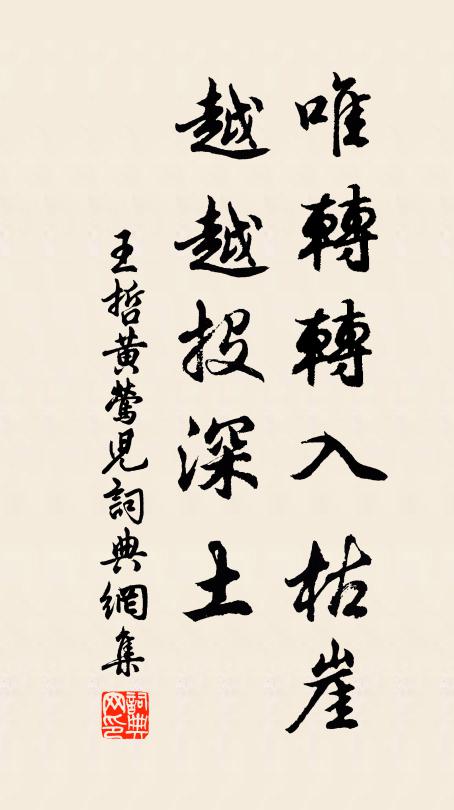 唯轉轉入枯崖
越越投深土
王哲黃鶯兒詞典網集
詞典網印